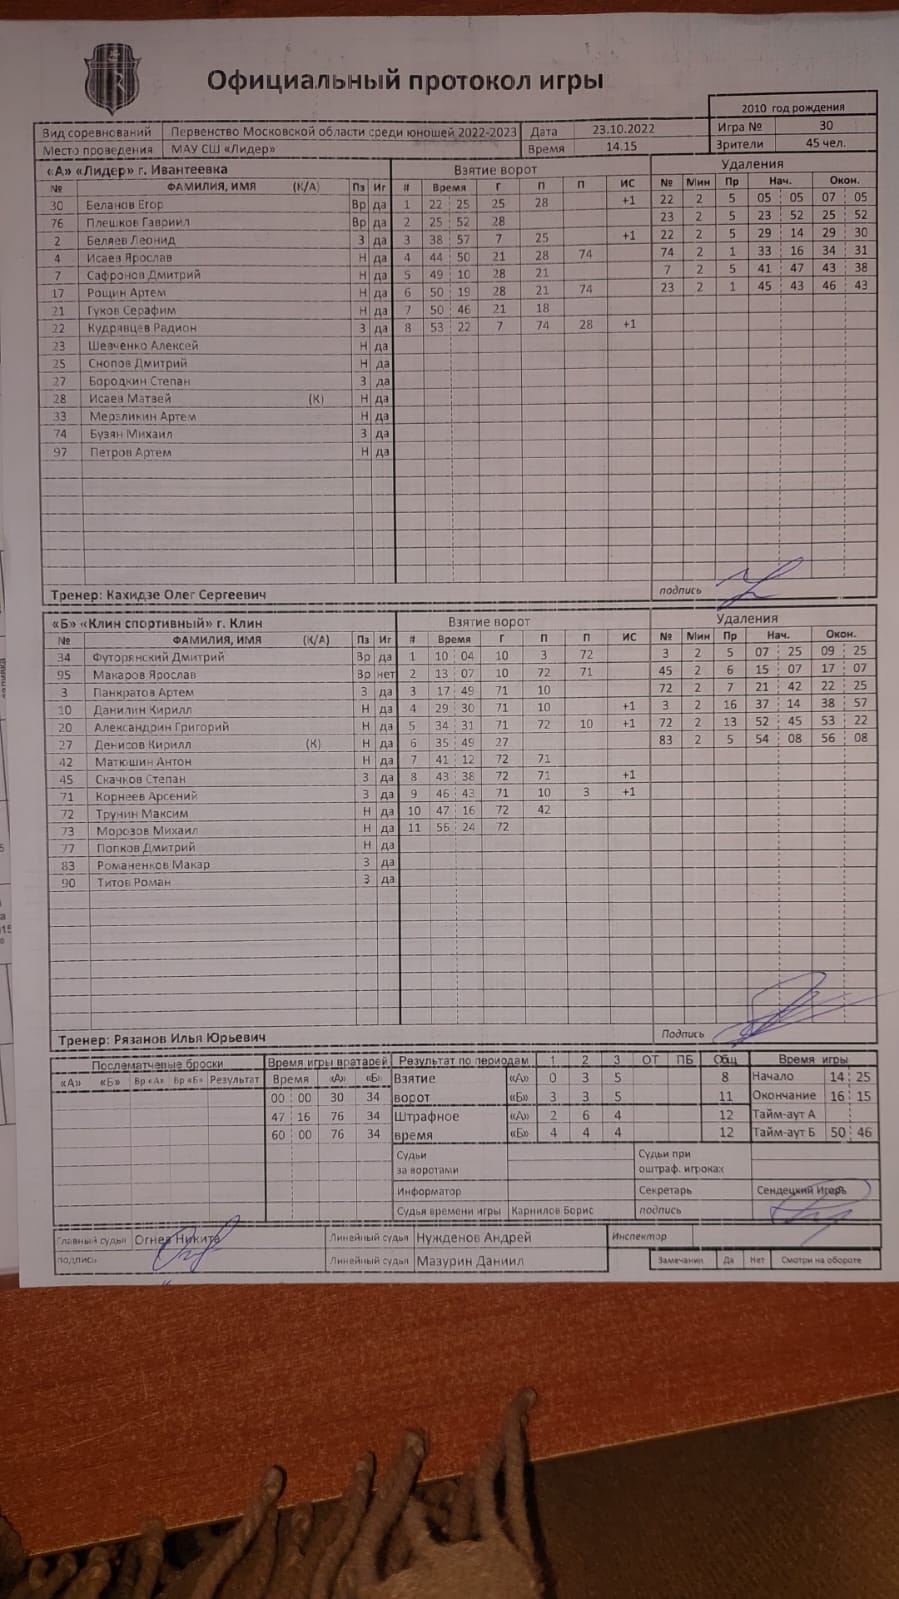 Официальный протокол игры
2010 год рождения
Вид соревнований Первенство Московской области среди юношей 2022-2023 Дата 23.10.2022 Игра № 30
Место проведения МАУ СШ «Лидер» Время 14.15 Зрители 45 чел.
«А» «Лидер» г. Ивантеевка Взятие ворот Удаления
№ ФАМИЛИЯ, ИМЯ (К/А) Пз Иг # Время Г П П ИС № Мин Пр Нач. Окон.
30 Беланов Егор Вр да 1 22 25 25 28 +1 22 2 5 05 05 07 05
76 Плешков Гавриил Вр да 2 25 52 28 23 2 5 23 52 25 52
2 Беляев Леонид З да 3 38 57 7 25 +1 22 2 5 29 14 29 30
4 Исаев Ярослав Н да 4 44 50 21 28 74 74 2 1 33 16 34 31
7 Сафронов Дмитрий Н да 5 49 10 28 21 7 2 5 41 47 43 38
17 Рощин Артем Н да 6 50 19 28 21 74 23 2 1 45 43 46 43
21 Гуков Серафим Н да 7 50 46 21 18
22 Кудрявцев Радион З да 8 53 22 7 74 28 +1
23 Шевченко Алексей Н да
25 Снопов Дмитрий Н да
27 Бородкин Степан З да
28 Исаев Матвей (К) Н да
33 Мерзликин Артем Н да
74 Бузян Михаил З да
97 Петров Артем Н да
Тренер: Кахидзе Олег Сергеевич подпись
«Б» «Клин спортивный» г. Клин Взятие ворот Удаления
№ ФАМИЛИЯ, ИМЯ (К/А) Пз Иг # Время Г П П ИС № Мин Пр Нач. Окон.
34 Футорянский Дмитрий Вр да 1 10 04 10 3 72 3 2 5 07 25 09 25
95 Макаров Ярослав Вр нет 2 13 07 10 72 71 45 2 6 15 07 17 07
3 Панкратов Артем З да 3 17 49 71 10 72 2 7 21 42 22 25
10 Данилин Кирилл Н да 4 29 30 71 10 +1 3 2 16 37 14 38 57
20 Александрин Григорий Н да 5 34 31 71 72 10 +1 72 2 13 52 45 53 22
27 Денисов Кирилл (К) Н да 6 35 49 27 83 2 5 54 08 56 08
42 Матюшин Антон Н да 7 41 12 72 71
45 Скачков Степан З да 8 43 38 72 71 +1
71 Корнеев Арсений З да 9 46 43 71 10 3 +1
72 Трунин Максим Н да 10 47 16 72 42
73 Морозов Михаил Н да 11 56 24 72
77 Попков Дмитрий Н да
83 Романенков Макар З да
90 Титов Роман З да
Тренер: Рязанов Илья Юрьевич Подпись
Послематчевые броски Время игры вратарей Результат по периодам 1 2 3 ОТ ПБ Общ Время игры
«А» «Б» Вр «А» Вр «Б» Результат Время «А» «Б» Взятие «А» 0 3 5 8 Начало 14 25
00 00 30 34 ворот «Б» 3 3 5 11 Окончание 16 15
47 16 76 34 Штрафное «А» 2 6 4 12 Тайм-аут А
60 00 76 34 время «Б» 4 4 4 12 Тайм-аут Б 50 46
Судьи за воротами Судьи при оштраф. игроках
Информатор Секретарь Сендецкий Игорь
Судья времени игры Карнилов Борис подпись
Главный судья Огнев Никита Линейный судья Нужденов Андрей Инспектор
подпись Линейный судья Мазурин Даниил Замечания Да Нет Смотри на обороте